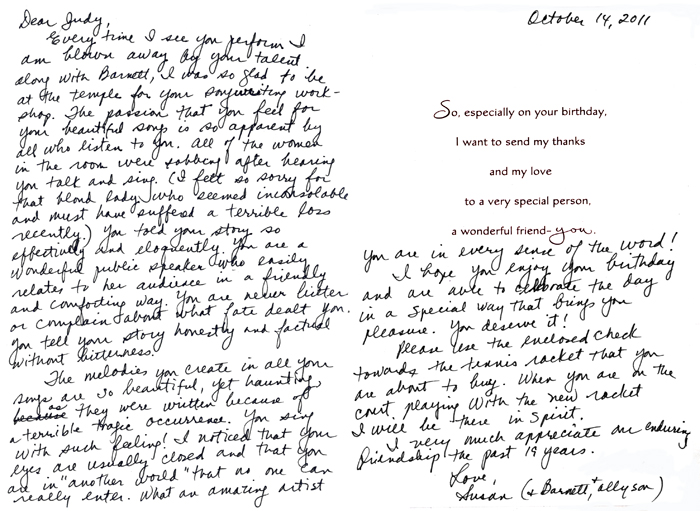 Dear Judy,
Every time I see you perform I
am blown away by your talent
along with Barnett, I was so glad to be
at the temple for your songwriting work-
shop. The passion that you feel for
your beautiful songs is so apparent by
all who listen to you. All of the women
in the room were sobbing after hearing
you talk and sing. (I felt so sorry for
that blond lady who seemed inconsolable
and must have suffered a terrible loss
recently.) You told your story so
effectively and eloquently. You are a
wonderful public speaker who easily
relates to her audience in a friendly
and comforting way. You are never bitter
or complain about what fate dealt you.
You tell your story honestly and factual
without bitterness.
The melodies you create in all your
songs are so beautiful, yet haunting
as they were written because of
a terrible tragic occurrence. You sing
with such feeling! I noticed that your
eyes are usually closed and that you
are in "another world" that no one can
really enter. What an amazing artist
October 14, 2011
So, especially on your birthday,
I want to send my thanks
and my love
to a very special person,
a wonderful friend-you.
you are in every sense of the word!
I hope you enjoy your birthday
and are able to celebrate the day
in a special way that brings you
pleasure. You deserve it!
Please use the enclosed check
towards the tennis racket that you
are about to buy. When you are on the
court playing with the new racket
I will be there in spirit.
I very much appreciate our enduring
friendship the past 19 years.
Love,
Susan (+ Barnett + Allyson)